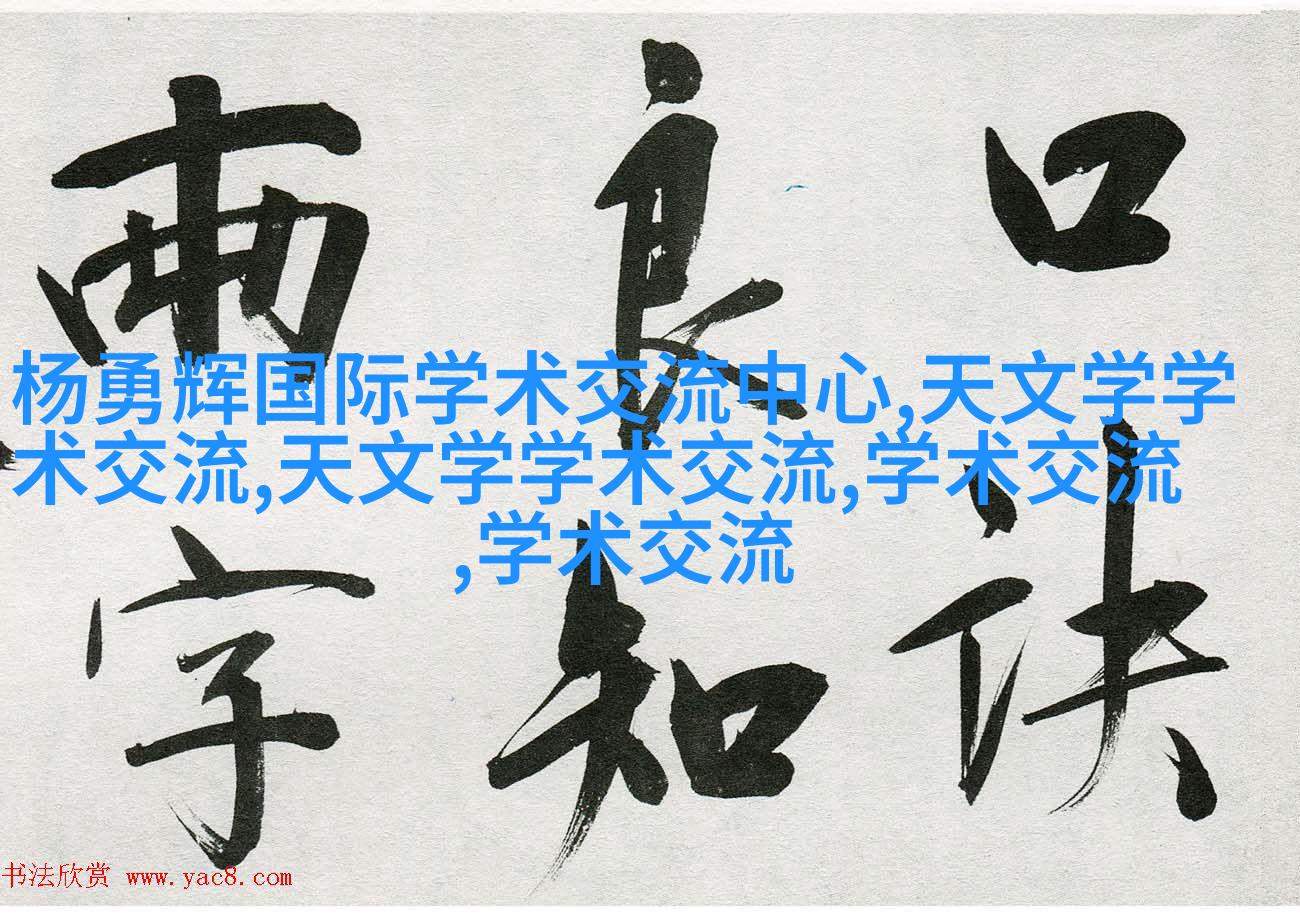 口訣
良知
兩字
杨勇辉国际学术交流中心,天文学学
术交流,天文学学术交流,学术交流
,学术交流
书法欣赏 www.yac8.com